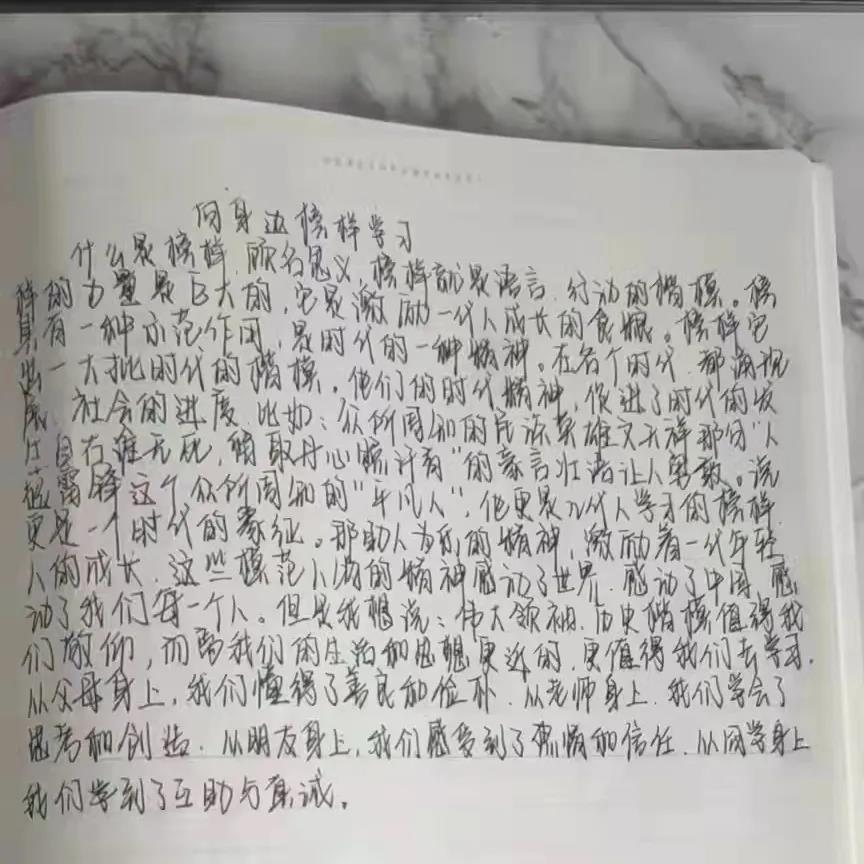 向身边榜样学习
什么是榜样，顾名思义，榜样就是语言、行动的楷模。榜
样的力量是巨大的，它是激励一代人成长的食粮。榜样它
具有一种示范作用，是时代的一种精神。在各个时代，都涌现
出一大批时代的楷模，他们的时代精神，促进了时代的发
展，社会的进度，比如：众所周知的民族英雄文天祥那份“人
生自古谁无死，留取丹心照汗青”的豪言壮语让人勇敢。说
起雷锋这个众所周知的“平凡人”，他更是几代人学习的榜样，
更是一个时代的象征。那助人为乐的精神，激励着一代年轻
人的成长，这些模范人物的精神感动了世界，感动了中国，感
动了我们每一个人。但是我想说：伟大领袖、历史楷模值得我
们敬仰，而离我们的生活和思想更近的，更值得我们去学习，
从父母身上，我们懂得了善良和俭朴，从老师身上，我们学会了
思考和创造，从朋友身上，我们感受到了热情和信任，从同学身上
我们学到了互助与真诚。